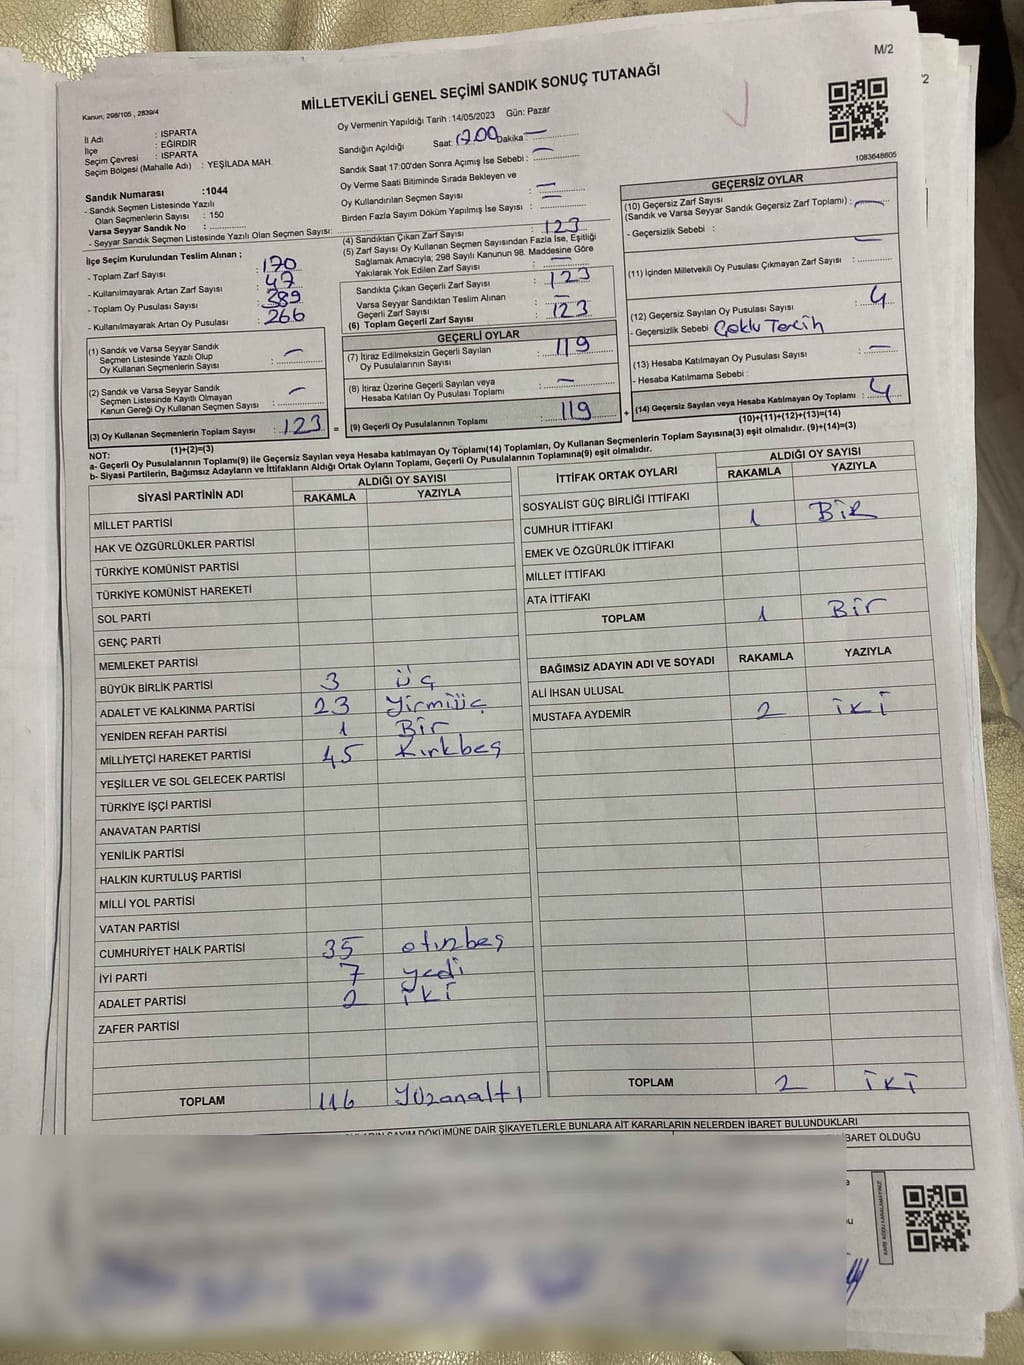 M/2
MİLLETVEKİLİ GENEL SEÇİMİ SANDIK SONUÇ TUTANAĞI
Kanun, 298/105 , 2839/4
İl Adı : ISPARTA
İlçe : EĞİRDİR
Seçim Çevresi : ISPARTA
Seçim Bölgesi (Mahalle Adı) : YEŞİLADA MAH.
Sandık Numarası :1044
- Sandık Seçmen Listesinde Yazılı
Olan Seçmenlerin Sayısı : 150
Varsa Seyyar Sandık No :
- Seyyar Sandık Seçmen Listesinde Yazılı Olan Seçmen Sayısı:
İlçe Seçim Kurulundan Teslim Alınan ;
- Toplam Zarf Sayısı : 170
- Kullanılmayarak Artan Zarf Sayısı : 47
- Toplam Oy Pusulası Sayısı : 389
- Kullanılmayarak Artan Oy Pusulası : 266
(1) Sandık ve Varsa Seyyar Sandık
Seçmen Listesinde Yazılı Olup
Oy Kullanan Seçmenlerin Sayısı : —
(2) Sandık ve Varsa Seyyar Sandık
Seçmen Listesinde Kayıtlı Olmayan
Kanun Gereği Oy Kullanan Seçmen Sayısı : —
(3) Oy Kullanan Seçmenlerin Toplam Sayısı : 123
(1)+(2)=(3)
Oy Vermenin Yapıldığı Tarih :14/05/2023 Gün: Pazar
Sandığın Açıldığı Saat: 17.00 Dakika —
Sandık Saat 17:00'den Sonra Açımış İse Sebebi : —
Oy Verme Saati Bitiminde Sırada Bekleyen ve
Oy Kullandırılan Seçmen Sayısı : —
Birden Fazla Sayım Döküm Yapılmış İse Sayısı : —
(4) Sandıktan Çıkan Zarf Sayısı : 123
(5) Zarf Sayısı Oy Kullanan Seçmen Sayısından Fazla İse, Eşitliği
Sağlamak Amacıyla; 298 Sayılı Kanunun 98. Maddesine Göre
Yakılarak Yok Edilen Zarf Sayısı : —
Sandıkta Çıkan Geçerli Zarf Sayısı : 123
Varsa Seyyar Sandıktan Teslim Alınan
Geçerli Zarf Sayısı : —
(6) Toplam Geçerli Zarf Sayısı : 123
GEÇERLİ OYLAR
(7) İtiraz Edilmeksizin Geçerli Sayılan
Oy Pusulalarının Sayısı : 119
(8) İtiraz Üzerine Geçerli Sayılan veya
Hesaba Katılan Oy Pusulası Toplamı : —
= (9) Geçerli Oy Pusulalarının Toplamı : 119
1083648605
GEÇERSİZ OYLAR
(10) Geçersiz Zarf Sayısı
(Sandık ve Varsa Seyyar Sandık Geçersiz Zarf Toplamı) : —
- Geçersizlik Sebebi :
(11) İçinden Milletvekili Oy Pusulası Çıkmayan Zarf Sayısı : —
(12) Geçersiz Sayılan Oy Pusulası Sayısı : 4
- Geçersizlik Sebebi Çoklu Tercih
(13) Hesaba Katılmayan Oy Pusulası Sayısı : —
- Hesaba Katılmama Sebebi :
+ (14) Geçersiz Sayılan veya Hesaba Katılmayan Oy Toplamı : 4
(10)+(11)+(12)+(13)=(14)
NOT:
a- Geçerli Oy Pusulalarının Toplamı(9) ile Geçersiz Sayılan veya Hesaba katılmayan Oy Toplamı(14) Toplamları, Oy Kullanan Seçmenlerin Toplam Sayısına(3) eşit olmalıdır. (9)+(14)=(3)
b- Siyasi Partilerin, Bağımsız Adayların ve İttifakların Aldığı Ortak Oyların Toplamı, Geçerli Oy Pusulalarının Toplamına(9) eşit olmalıdır.
SİYASİ PARTİNİN ADI ALDIĞI OY SAYISI
RAKAMLA YAZIYLA
MİLLET PARTİSİ
HAK VE ÖZGÜRLÜKLER PARTİSİ
TÜRKİYE KOMÜNİST PARTİSİ
TÜRKİYE KOMÜNİST HAREKETİ
SOL PARTİ
GENÇ PARTİ
MEMLEKET PARTİSİ
BÜYÜK BİRLİK PARTİSİ 3 üç
ADALET VE KALKINMA PARTİSİ 23 Yirmiüç
YENİDEN REFAH PARTİSİ 1 Bir
MİLLİYETÇİ HAREKET PARTİSİ 45 Kırkbeş
YEŞİLLER VE SOL GELECEK PARTİSİ
TÜRKİYE İŞÇİ PARTİSİ
ANAVATAN PARTİSİ
YENİLİK PARTİSİ
HALKIN KURTULUŞ PARTİSİ
MİLLİ YOL PARTİSİ
VATAN PARTİSİ
CUMHURİYET HALK PARTİSİ 35 otuzbeş
İYİ PARTİ 7 yedi
ADALET PARTİSİ 2 iki
ZAFER PARTİSİ
TOPLAM 116 Yüzonaltı
İTTİFAK ORTAK OYLARI ALDIĞI OY SAYISI
RAKAMLA YAZIYLA
SOSYALİST GÜÇ BİRLİĞİ İTTİFAKI
CUMHUR İTTİFAKI 1 BİR
EMEK VE ÖZGÜRLÜK İTTİFAKI
MİLLET İTTİFAKI
ATA İTTİFAKI
TOPLAM 1 Bir
BAĞIMSIZ ADAYIN ADI VE SOYADI RAKAMLA YAZIYLA
ALİ İHSAN ULUSAL
MUSTAFA AYDEMİR 2 İKİ
TOPLAM 2 İKİ
SAYIM DÖKÜMÜNE DAİR ŞİKAYETLERLE BUNLARA AİT KARARLARIN NELERDEN İBARET BULUNDUKLARI
İBARET OLDUĞU